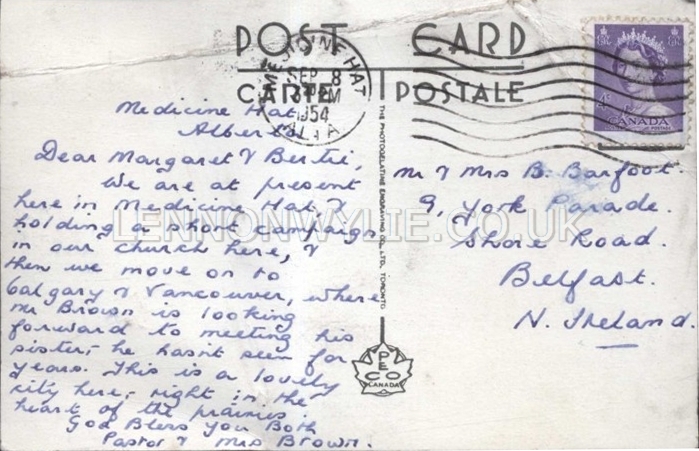 POST CARD
CARTE POSTALE
MEDICINE HAT
SEP 8
PM
1954
ALTA
CANADA
Medicine Hat,
Alberta
Dear Margaret & Bertie,
We are at present
here in Medicine Hat &
holding a short campaign
in our church here, &
then we move on to
Calgary & Vancouver, where
Mr Brown is looking
forward to meeting his
sister, he hasn't seen for
years. This is a lovely
city here, right in the
heart of the prairies.
God Bless You Both
Pastor & Mrs Brown.
THE PHOTOGELATINE ENGRAVING CO., LTD., TORONTO
PECO
CANADA
Mr & Mrs B. Barfoot.
9, York Parade.
Shore Road.
Belfast.
N. Ireland.
LENNONWYLIE.CO.UK